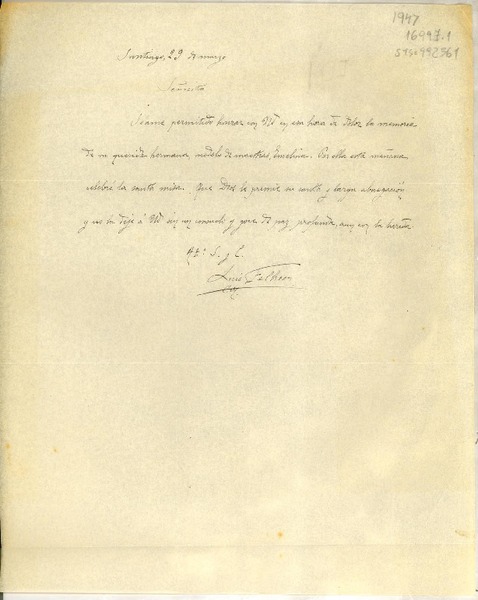 1947
16997.1
Santiago, 23 de marzo
Señorita
Séame permitido honrar con Ud en esa hora de dolor la memoria
de su querida hermana, modelo de maestras, Emelina. Por ella esta mañana
celebré la santa misa. Que Dios le premie su santa y larga abnegación
y no la deje a Ud sin un consuelo y goce de paz profunda, aun con la herida
S. y C.
Luis